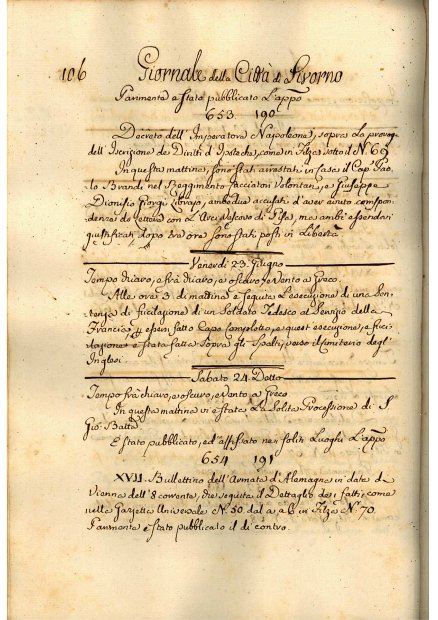 106 Giornale della Città di Livorno
Parimente è stato pubblicato L'app.o
653. 190
Decreto dell'Imperatore Napoleone, sopra la prorog.
dell'Iscrizione de Diritti d'Ipoteche, come in Filza sotto il N.° 69
In questa mattina, sono stati arrestati in Casa il Cap. Pao-
lo Brandi nel Reggimento Cacciatori Volontari, e Giuseppe
Dionisio Giorgi Libraio, ambedue accusati d'aver avuto corrispon-
denza di lettere con L'Arcivescovo di Pisa, ma ambi essendosi
giustificati, dopo tre ore sono stati posti in Libertà
Venerdì 23. Giugno
Tempo chiaro, e frà chiaro, e oscuro, e Vento a Greco.
Alle ore 3. di mattina è seguita L'esecuzione di una Sen-
tenza di fucilazione di un Soldato Tedesco al Servizio della
Francia p. essersi fatto Capo Complotto, e quest'esecuzione, a fuci-
lazione è stata fatta Sopra gli Spalti, verso il Cimiterio degl'
Inglesi.
Sabato 24. Detto
Tempo frà chiaro, e oscuro, e Vento a Greco
In questa mattina vi è stata La Solita Processione di S.
Gio: Batta
È stato pubblicato, ed affissato nei soliti Luoghi L'app.o
654 191
XVII. Bullettino dell'Armata d'Alemagna in data di
Vienna dell'8 corrente, che seguita il Dettaglio dei fatti, come
nella Gazzetta Universale N. 50. dal a 6 in Filza N.° 70.
Parimente è stato pubblicato il di contro.